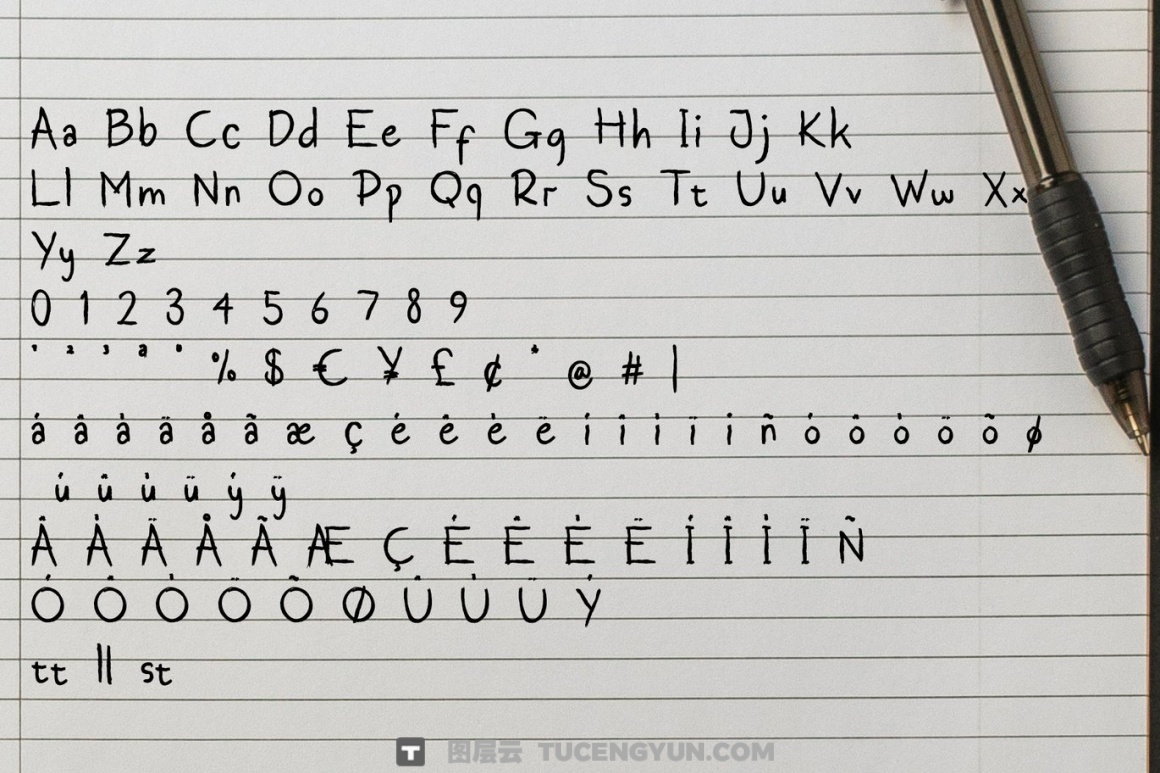 Aa Bb Cc Dd Ee Ff Gg Hh Ii Jj Kk
Ll Mm Nn Oo Pp Qq Rr Ss Tt Uu Vv Ww Xx
Yy Zz
0 1 2 3 4 5 6 7 8 9
¹ ² ³ ª º % $ € ¥ £ ¢ * @ # |
á â à ä å ã æ ç é ê è ë í î ì ï i ñ ó ô ò ö õ ø
ú û ù ü ý ÿ
Â À Ä Å Ã Æ Ç É Ê È Ë Í Î Ì Ï Ñ
Ó Ô Ò Ö Õ Ø Û Ù Ü Ý
tt ll st
T 图层云 TUCENGYUN.COM